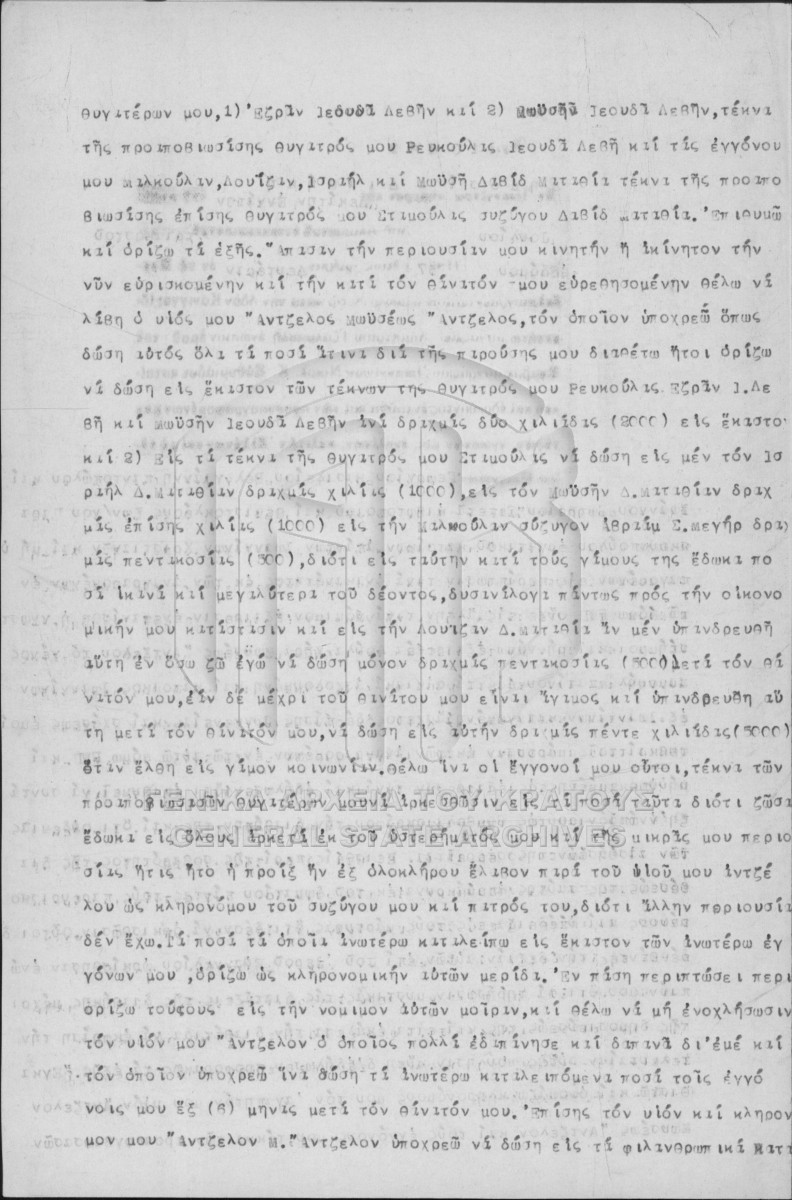 θυγατέρων μου,1)Ἐζρᾶν Ιεουδᾶ Λεβῆν καί 2) Μωϋσῆν Ιεουδᾶ Λεβῆν,τέκνα
τῆς προαποβιωσάσης θυγατρός μου Ρευκούλας Ιεουδᾶ Λεβῆ καί τάς ἐγγόνου
μου Μαλκούλαν,Λουΐζαν,Ισραήλ καί Μωϋσῆ Δαβίδ Ματαθία τέκνα τῆς προαπο
βιωσάσης ἐπίσης θυγατρός μου Σταμούλας συζύγου Δαβίδ Ματαθία.Ἐπιθυμῶ
καί ὁρίζω τά ἑξῆς.Ἅπασαν τήν περιουσίαν μου κινητήν ἤ ἀκίνητον τήν
νῦν εὑρισκομένην καί τήν κατά τόν θάνατόν μου εὑρεθησομένην θέλω νά
λάβη ὁ υἱός μου Ἄντζελος Μωϋσέως Ἄντζελος,τόν ὁποῖον ὑποχρεῶ ὅπως
δώση αὐτός ὅλα τά ποσά ἅτινα διά τῆς παρούσης μου διαθέτω ἤτοι ὁρίζω
νά δώση εἰς ἕκαστον τῶν τέκνων της θυγατρός μου Ρευκούλας Ἐζρᾶν Ι.Λε
βῆ καί Μωϋσῆν Ιεουδᾶ Λεβῆν ἀνά δραχμάς δύο χιλιάδας (2000) εἰς ἕκαστο
καί 2) Εἰς τά τέκνα τῆς θυγατρός μου Σταμούλας νά δώση εἰς μέν τόν Ισ
ραήλ Δ.Ματαθίαν δραχμάς χιλίας (1000),εἰς τόν Μωϋσῆν Δ.Ματαθίαν δραχ
μάς ἐπίσης χιλίας (1000) εἰς τήν Μαλκούλαν σύζυγον Ἀβραάμ Σ.Μεγήρ δρα
μάς πεντακοσίας (500),διότι εἰς ταύτην κατά τούς γάμους της ἔδωκα πο
σά ἱκανά καί μεγαλύτερα τοῦ δέοντος,δυσανάλογα πάντως πρός τήν οἰκονο
μικήν μου κατάστασιν καί εἰς τήν Λουΐζαν Δ.Ματαθία ἄν μέν ὑπανδρευθῆ
αὕτη ἐν ὅσω ζῶ ἐγώ νά δώση μόνον δραχμάς πεντακοσίας (500)μετά τόν θά
νατόν μου,ἐάν δέ μέχρι τοῦ θανάτου μου εἶναι ἄγαμος καί ὑπανδρευθῆ αὕ
τη μετά τόν θάνατόν μου,νά δώση εἰς αὐτήν δραχμάς πέντε χιλιάδας(5000)
ὅταν ἔλθη εἰς γάμον κοινωνίαν.Θέλω ἵνα οἱ ἔγγονοί μου οὗτοι,τέκνα τῶν
προαποβιωσασῶν θυγατέρων μου νά ἀρκεσθῶσιν εἰς τά ποσά ταῦτα διότι ζῶσα
ἔδωκα εἰς ὅλους ἀρκετά ἐκ τοῦ ὑστερήματός μου καί τῆς μικρᾶς μου περιο
σίας ἥτις ἦτο ἡ προίξ ἥν ἐξ ὁλοκλήρου ἔλαβον παρά τοῦ υἱοῦ μου Ἀντζέ
λου ὡς κληρονόμου τοῦ συζύγου μου καί πατρός του,διότι ἄλλην περιουσία
δέν ἔχω.Τά ποσά τά ὁποῖα ἀνωτέρω καταλείπω εἰς ἕκαστον τῶν ἀνωτέρω ἐγ
γόνων μου ,ὁρίζω ὡς κληρονομικήν αὐτῶν μερίδα.Ἐν πάση περιπτώσει περι
ορίζω τούτους εἰς τήν νόμιμον αὐτῶν μοῖραν,καί θέλω νά μή ἐνοχλήσωσιν
τόν υἱόν μου Ἄντζελον ὁ ὁποῖος πολλά ἐδαπάνησε καί δαπανᾶ δι'ἐμέ καί
τόν ὁποῖον ὑποχρεῶ ἵνα δώση τά ἀνωτέρω καταλειπόμενα ποσά τοῖς ἐγγό
νοις μου ἕξ (6) μῆνας μετά τόν θάνατόν μου.Ἐπίσης τόν υἱόν καί κληρον
μον μου Ἄντζελον Μ.Ἄντζελον ὑποχρεῶ νά δώση εἰς τά φιλανθρωπικά Κατα
ΓΕΝΙΚΑ ΑΡΧΕΙΑ ΤΟΥ ΚΡΑΤΟΥΣ
GENERAL STATE ARCHIVES